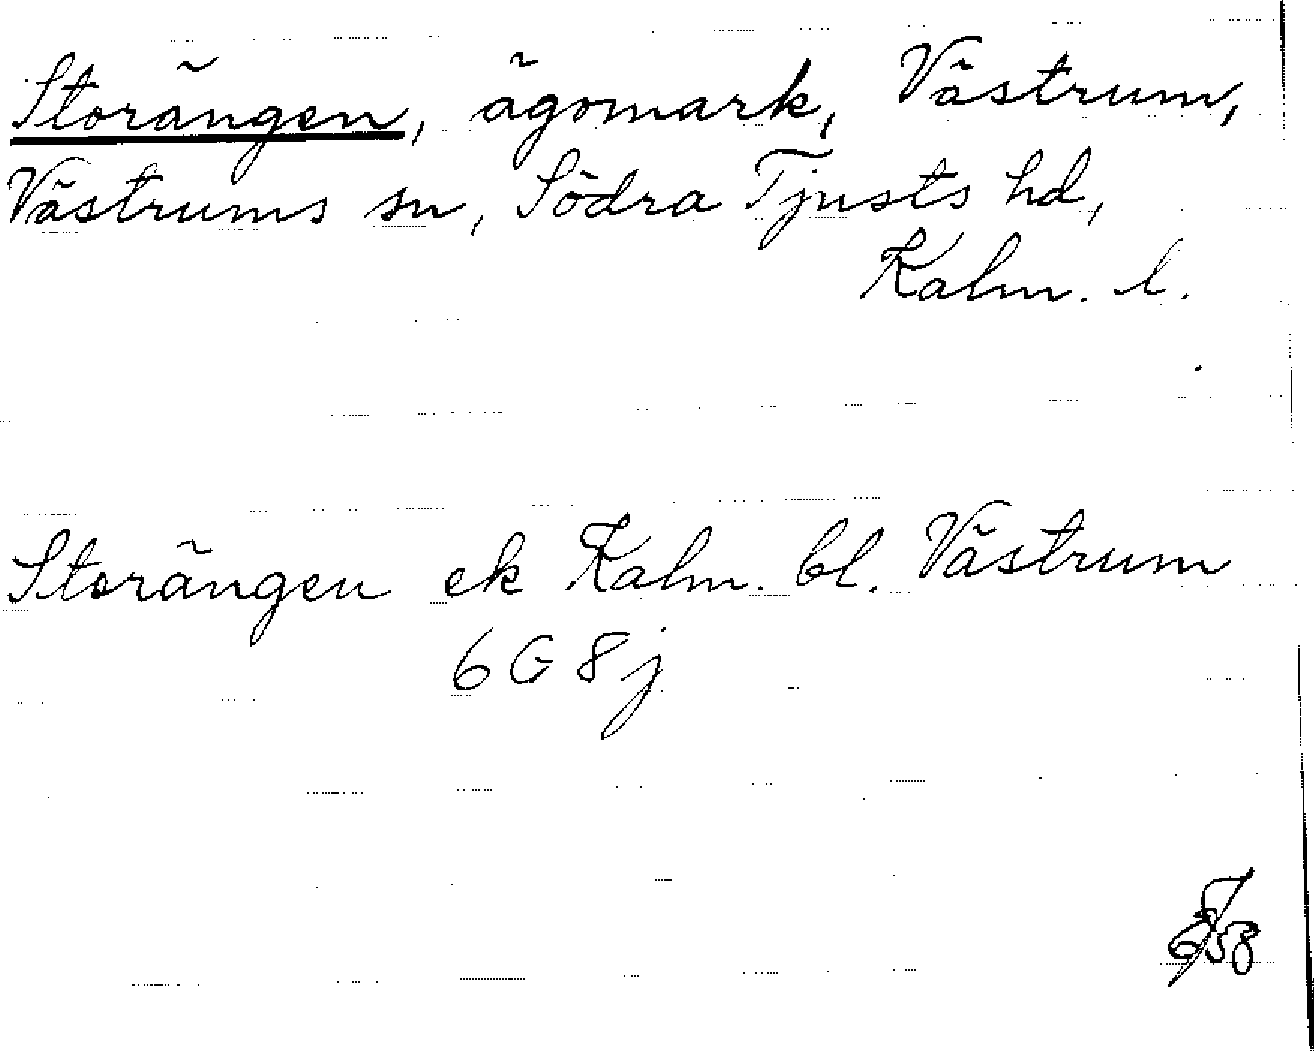 Storängen, ägomark, Västrum,
Västrums sn, Södra Tjusts hd,
Kalm. l.
Storängen ek Kalm. bl. Västrum
6 G 8 j